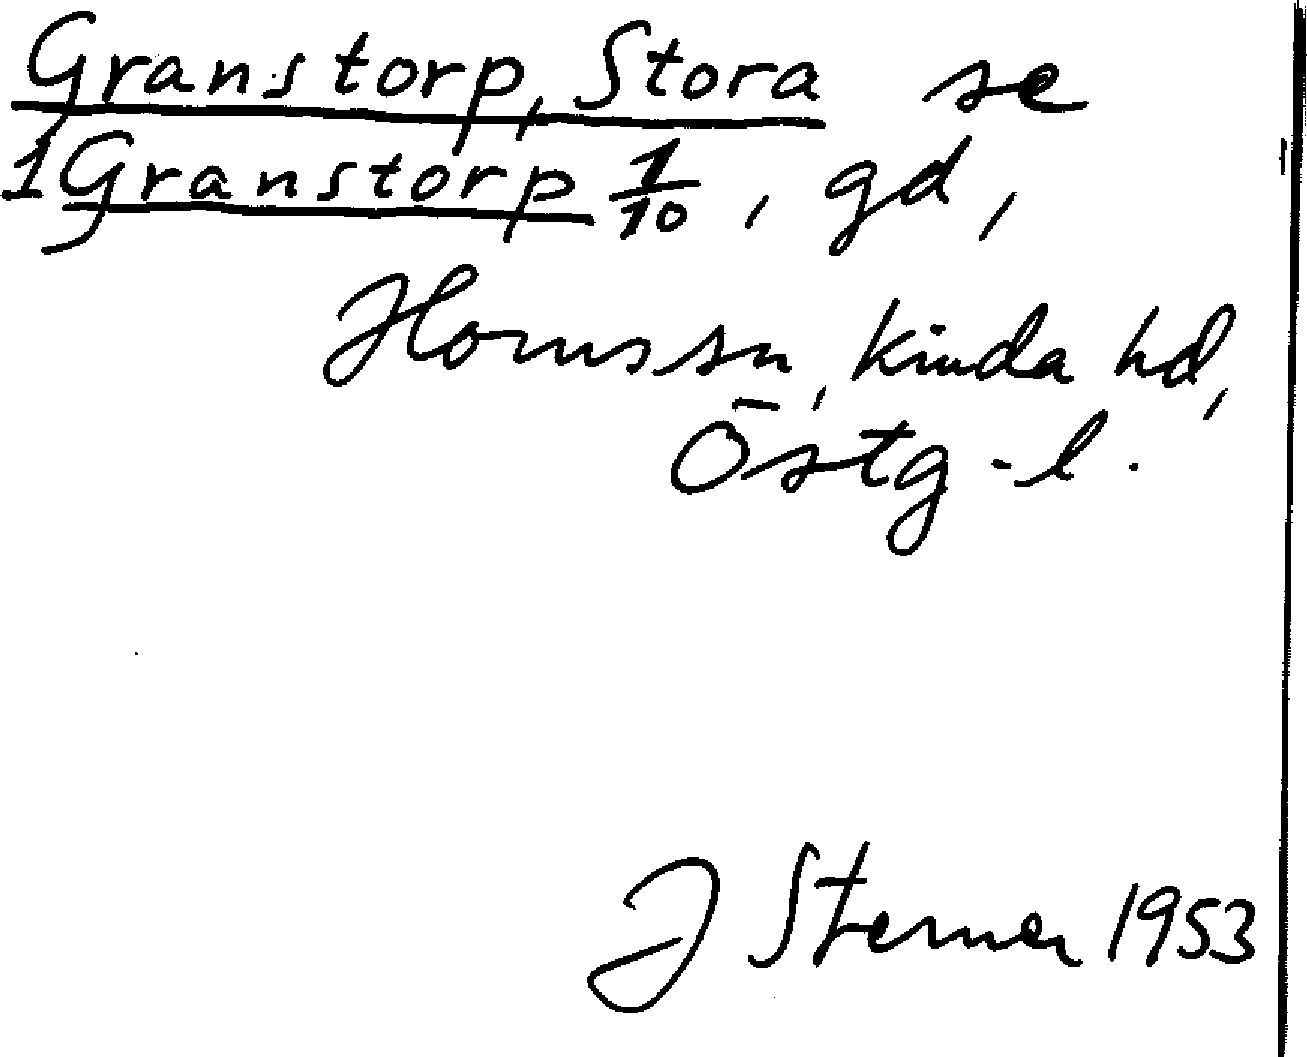 Granstorp, Stora se
1 Granstorp 1/10, gd,
Horns sn, Kinda hd,
Östg-l.
J Sterner 1953